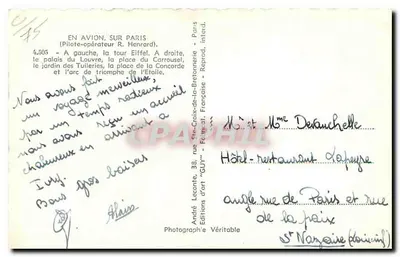 EN AVION, SUR PARIS
(Pilote-opérateur R. Henrard).
4.503 - A gauche, la tour Eiffel. A droite,
le palais du Louvre, la place du Carrousel,
le jardin des Tuileries, la place de la Concorde
et l'arc de triomphe de l'Etoile.
Nous avons fait
un voyage merveilleux,
par un temps radieux
nous avons reçu un accueil
chaleureux en arrivant à
Ivry.
Bons gros baisers
Alain
André Leconte, 38, rue Ste-Croix-de-la-Bretonnerie - Paris
Editions d'art "GUY" - Fabricat. Française - Reprod. interd.
Photographie Véritable
Mr et Mme Devauchelle
Hôtel-restaurant Lapeyre
angle rue de Paris et rue
de la paix
St Nazaire